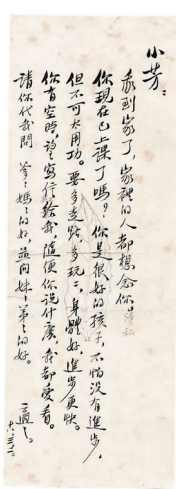 小芳：
我到家了，家裡的人都想念你。
你現在已上課了嗎？你是很好的孩子，不怕沒有進步，
但不可太用功。要多走路多玩玩，身體好，進步更快。
你有空時，望寫信給我，隨便你说什麼我都愛看。
請你代我問爹爹媽媽的好，並问妹妹弟弟的好。